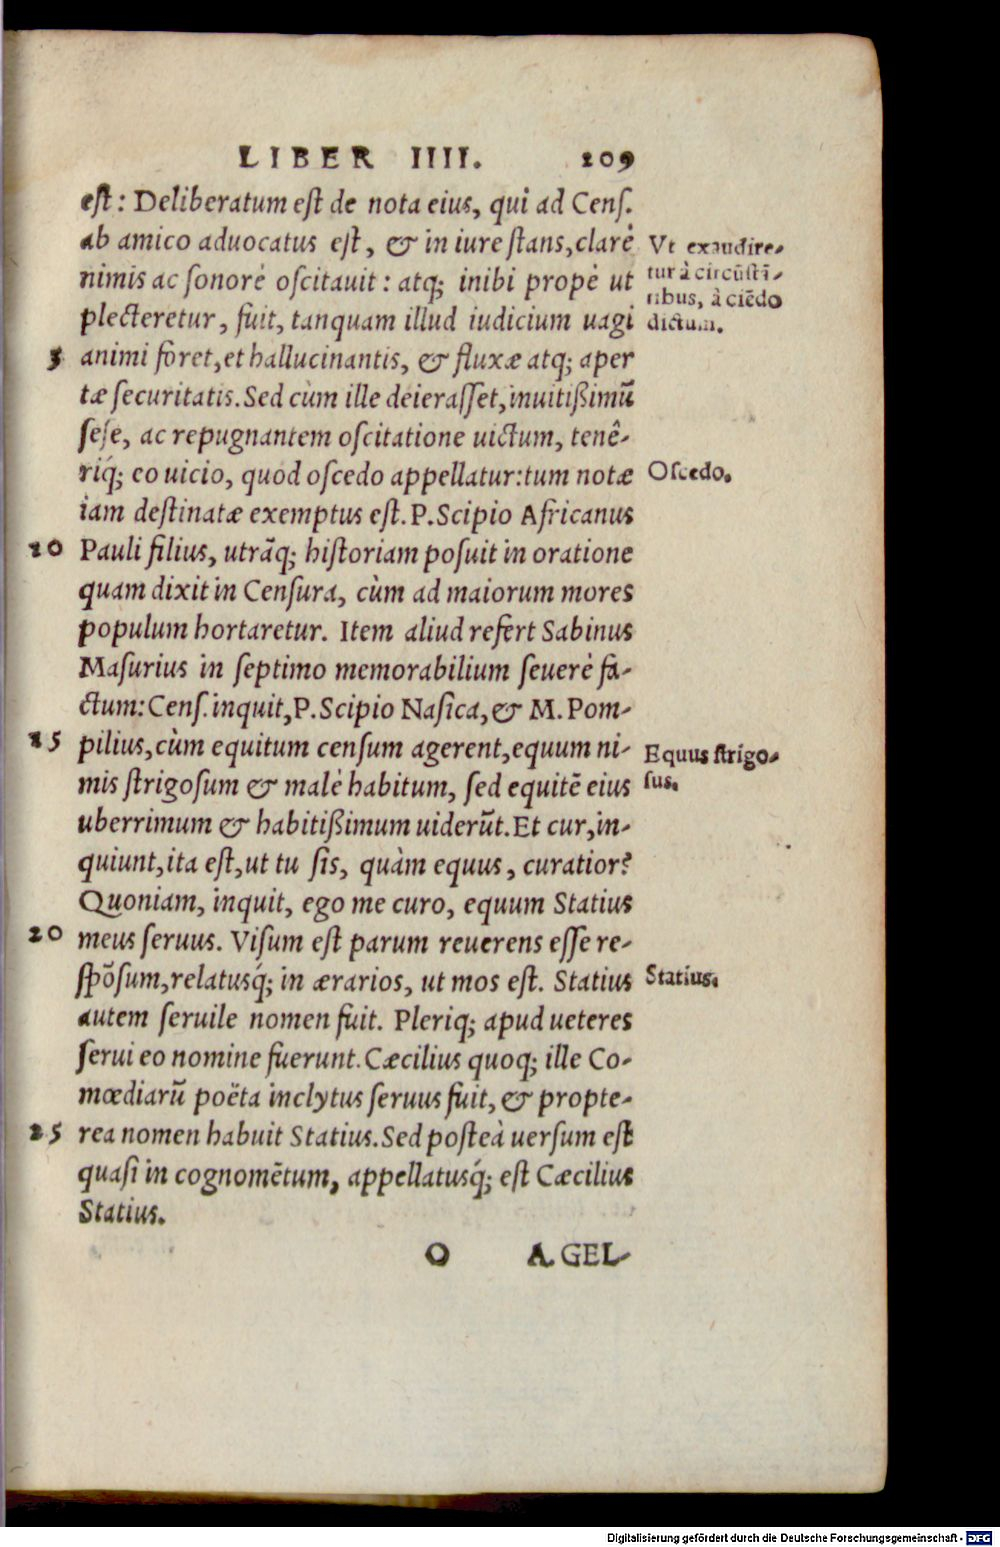 LIBER IIII. 209
eſt: Deliberatum eſt de nota eius, qui ad Cenſ.
ab amico aduocatus eſt, & in iure ſtans, clarè
nimis ac ſonorè oſcitauit: atq; inibi propè ut
plecteretur, fuit, tanquam illud iudicium uagi
5 animi foret, et hallucinantis, & fluxæ atq; aper
tæ ſecuritatis. Sed cùm ille deieraſſet, inuitißimū
ſeſe, ac repugnantem oſcitatione uictum, tenê-
riq́; eo uicio, quod oſcedo appellatur: tum notæ
iam deſtinatæ exemptus eſt. P. Scipio Africanus
10 Pauli filius, utrāq; hiſtoriam poſuit in oratione
quam dixit in Cenſura, cùm ad maiorum mores
populum hortaretur. Item aliud refert Sabinus
Maſurius in ſeptimo memorabilium ſeuerè fa-
ctum: Cenſ. inquit, P. Scipio Naſica, & M. Pom-
15 pilius, cùm equitum cenſum agerent, equum ni-
mis ſtrigoſum & malè habitum, ſed equitē eius
uberrimum & habitißimum uiderūt. Et cur, in-
quiunt, ita eſt, ut tu ſis, quàm equus, curatior?
Quoniam, inquit, ego me curo, equum Statius
20 meus ſeruus. Viſum eſt parum reuerens eſſe re-
ſpōſum, relatusq́; in ærarios, ut mos eſt. Statius
autem ſeruile nomen fuit. Pleriq; apud ueteres
ſerui eo nomine fuerunt. Cæcilius quoq; ille Co-
mœdiarū poëta inclytus ſeruus fuit, & propte-
25 rea nomen habuit Statius. Sed poſteà uerſum eſt
quaſi in cognomētum, appellatusq́; eſt Cæcilius
Statius.
O A. GEL-
Vt exaudire-
tur à circūſtā-
tibus, à ciēdo
dictum.
Oſcedo.
Equus ſtrigo-
ſus.
Statius.
Digitalisierung gefördert durch die Deutsche Forschungsgemeinschaft - DFG